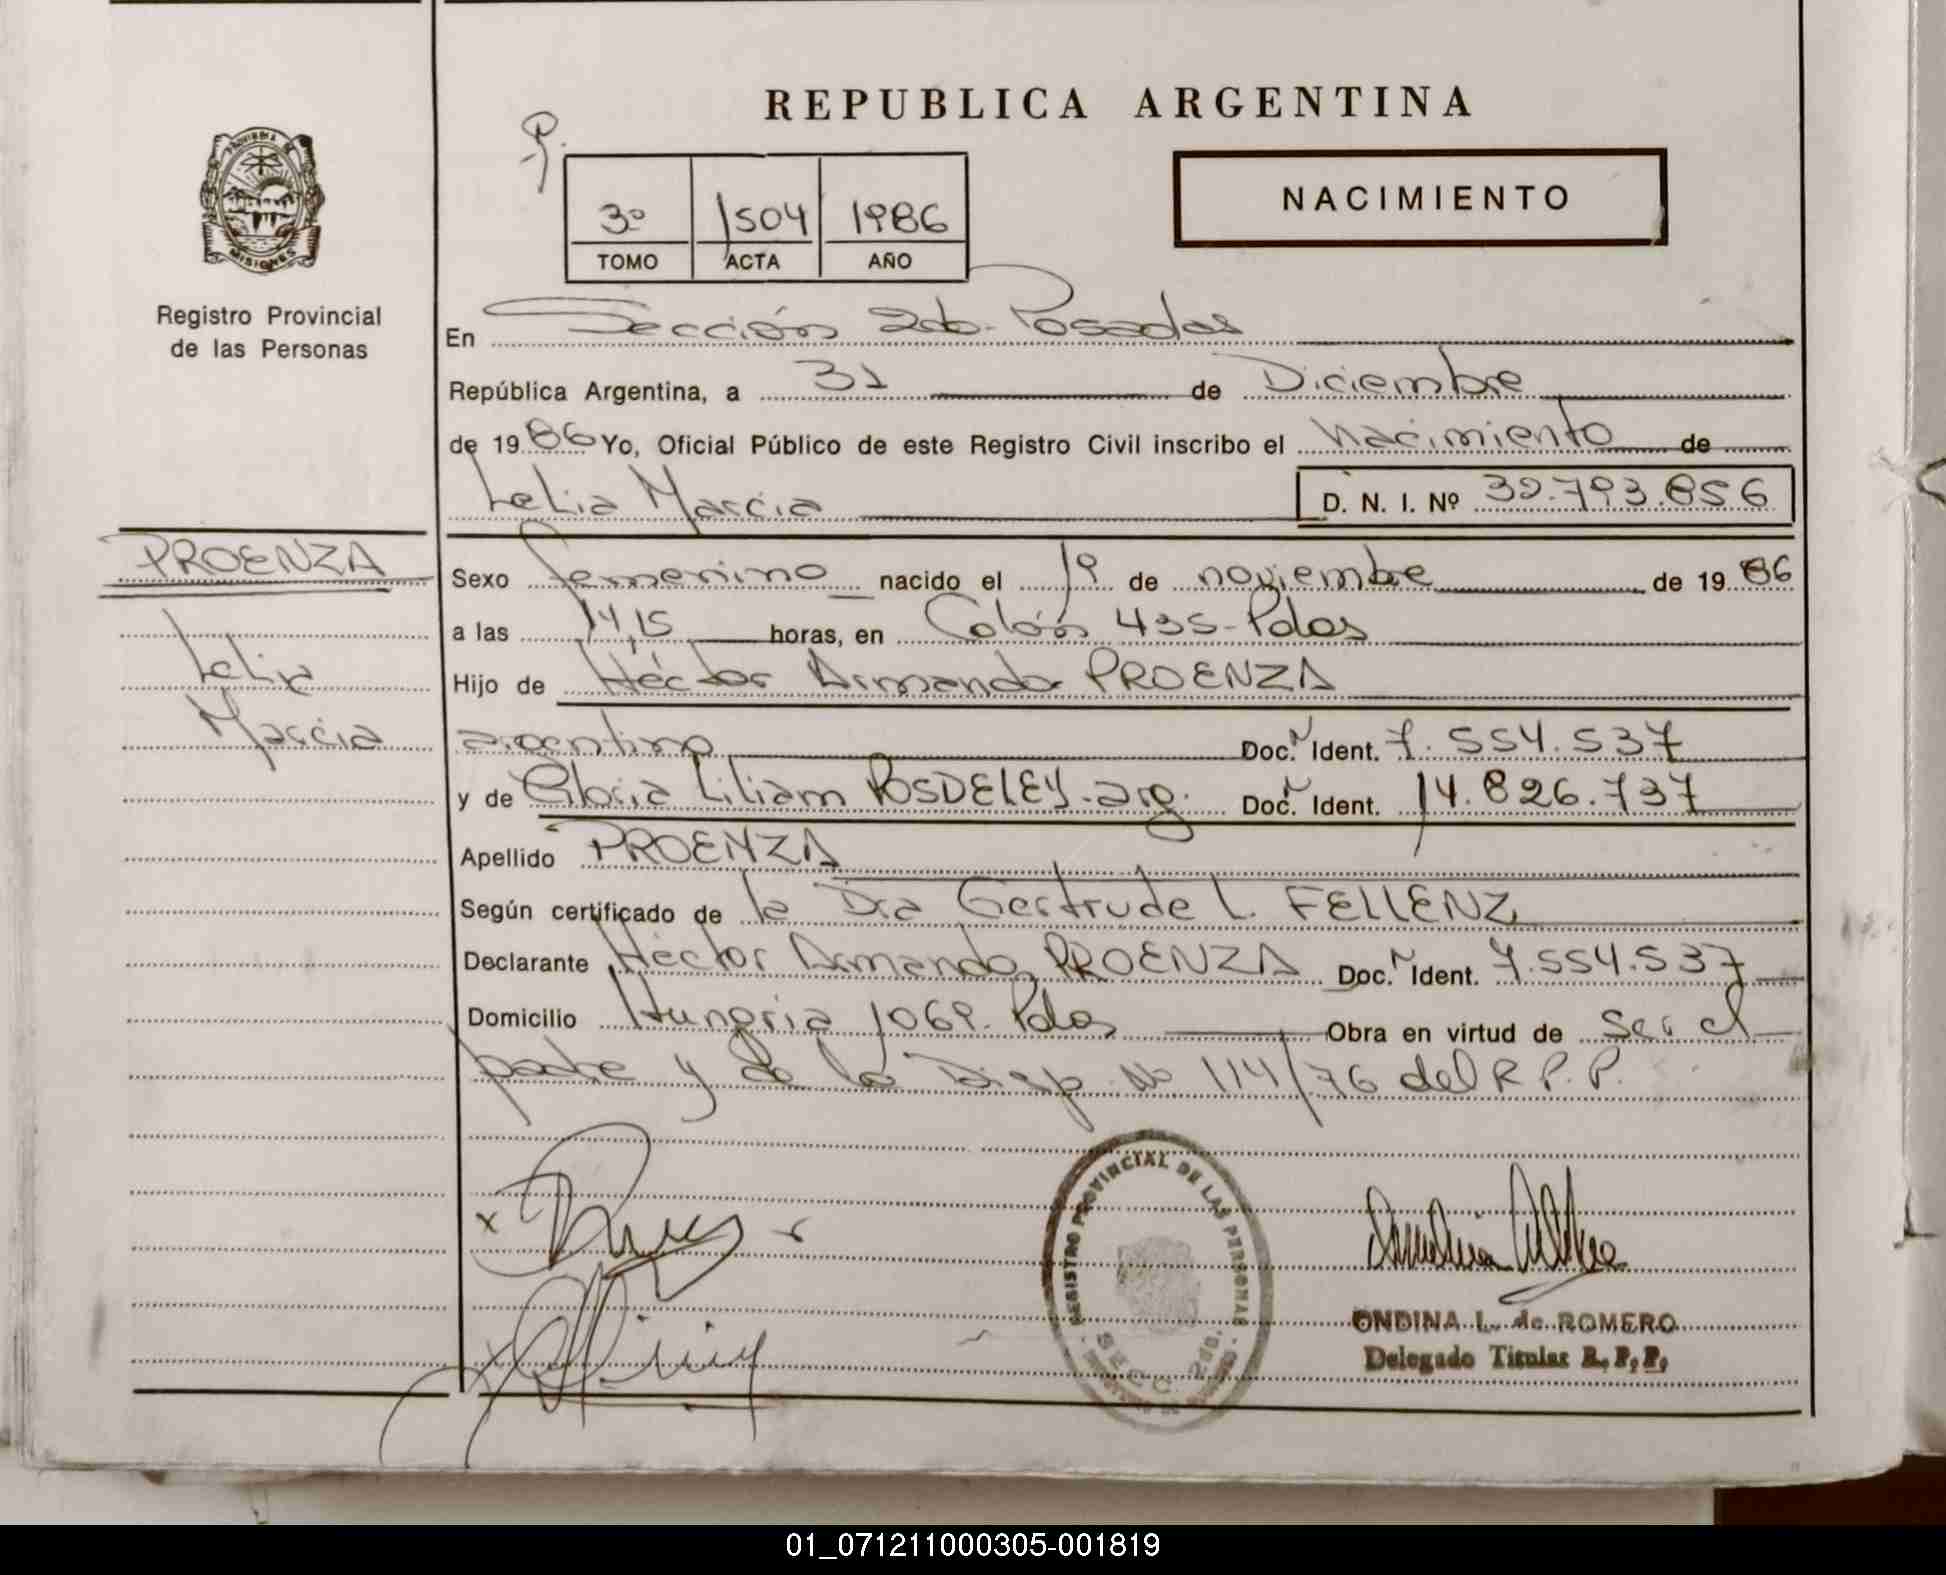 REPUBLICA ARGENTINA
NACIMIENTO
3º 1504 1986
TOMO ACTA AÑO
PROVINCIA DE
MISIONES
Registro Provincial
de las Personas
En Sección 2da. Posadas
República Argentina, a 31 de Diciembre
de 1986 Yo, Oficial Público de este Registro Civil inscribo el nacimiento de
Lelia Marcia D. N. I. Nº 32.793.856
PROENZA
Lelia
Marcia
Sexo femenino nacido el 19 de noviembre de 1986
a las 14,15 horas, en Colón 435-Pdas
Hijo de Héctor Armando PROENZA
argentino Doc. Ident. 7.554.537
y de Gloria Liliam POSDELEY-arg. Doc. Ident. 14.826.737
Apellido PROENZA
Según certificado de la Dra Gertrude L. FELLENZ
Declarante Héctor Armando PROENZA Doc. Ident. 7.554.537
Domicilio Hungría 1069-Pdas Obra en virtud de ser el
padre y de la Disp. Nº 114/76 del R.P.P.
REGISTRO PROVINCIAL DE LAS PERSONAS
SECC. 2da.
ONDINA L. de ROMERO
Delegado Titular R.P.P.
01_071211000305-001819